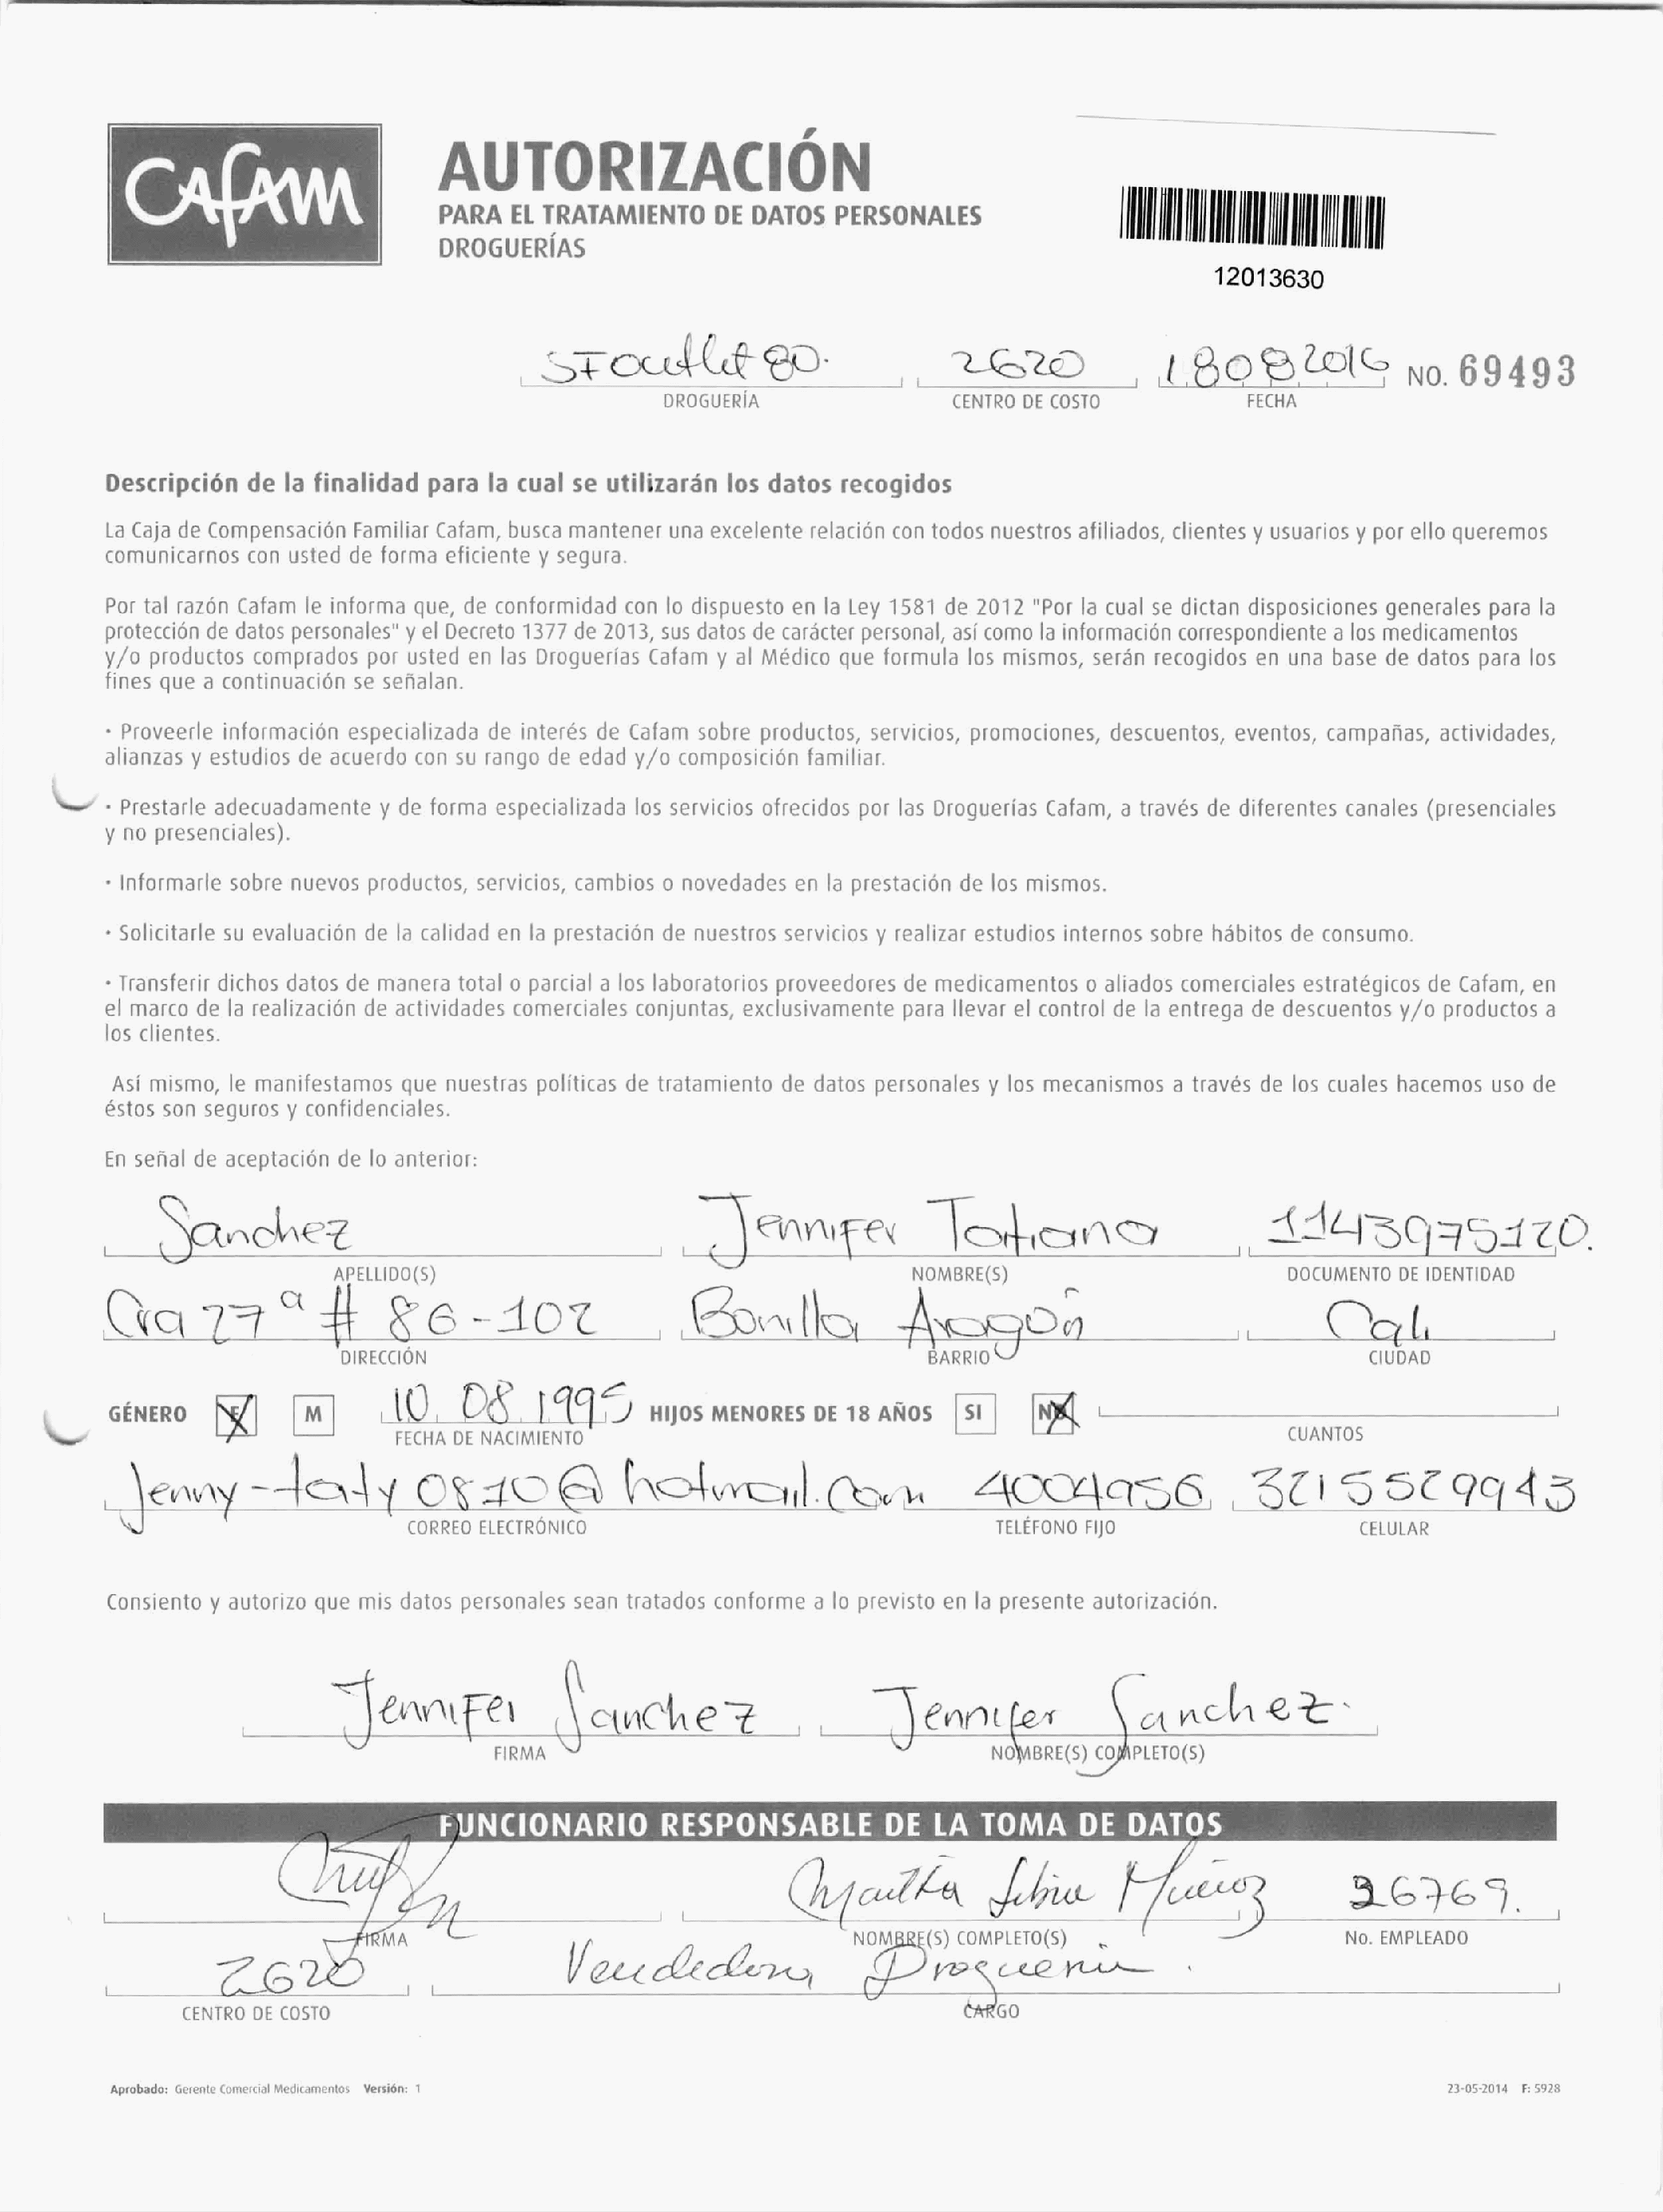 Cafam
AUTORIZACIÓN
PARA EL TRATAMIENTO DE DATOS PERSONALES
DROGUERÍAS
12013630
SF Outlet 80. 2620 18082016 NO. 69493
DROGUERÍA CENTRO DE COSTO FECHA
Descripción de la finalidad para la cual se utilizarán los datos recogidos
La Caja de Compensación Familiar Cafam, busca mantener una excelente relación con todos nuestros afiliados, clientes y usuarios y por ello queremos
comunicarnos con usted de forma eficiente y segura.
Por tal razón Cafam le informa que, de conformidad con lo dispuesto en la Ley 1581 de 2012 "Por la cual se dictan disposiciones generales para la
protección de datos personales" y el Decreto 1377 de 2013, sus datos de carácter personal, así como la información correspondiente a los medicamentos
y/o productos comprados por usted en las Droguerías Cafam y al Médico que formula los mismos, serán recogidos en una base de datos para los
fines que a continuación se señalan.
· Proveerle información especializada de interés de Cafam sobre productos, servicios, promociones, descuentos, eventos, campañas, actividades,
alianzas y estudios de acuerdo con su rango de edad y/o composición familiar.
· Prestarle adecuadamente y de forma especializada los servicios ofrecidos por las Droguerías Cafam, a través de diferentes canales (presenciales
y no presenciales).
· Informarle sobre nuevos productos, servicios, cambios o novedades en la prestación de los mismos.
· Solicitarle su evaluación de la calidad en la prestación de nuestros servicios y realizar estudios internos sobre hábitos de consumo.
· Transferir dichos datos de manera total o parcial a los laboratorios proveedores de medicamentos o aliados comerciales estratégicos de Cafam, en
el marco de la realización de actividades comerciales conjuntas, exclusivamente para llevar el control de la entrega de descuentos y/o productos a
los clientes.
Así mismo, le manifestamos que nuestras políticas de tratamiento de datos personales y los mecanismos a través de los cuales hacemos uso de
éstos son seguros y confidenciales.
En señal de aceptación de lo anterior:
Sanchez Jennifer Tatiana 1143975120.
APELLIDO(S) NOMBRE(S) DOCUMENTO DE IDENTIDAD
Cra 27ª # 86-102 Bonilla Aragón Cali
DIRECCIÓN BARRIO CIUDAD
GÉNERO F M 10 08 1995 HIJOS MENORES DE 18 AÑOS SI NO
FECHA DE NACIMIENTO CUANTOS
Jenny-taty0810@hotmail.com 4004956 3215529943
CORREO ELECTRÓNICO TELÉFONO FIJO CELULAR
Consiento y autorizo que mis datos personales sean tratados conforme a lo previsto en la presente autorización.
Jennifer Sanchez Jennifer Sanchez.
FIRMA NOMBRE(S) COMPLETO(S)
FUNCIONARIO RESPONSABLE DE LA TOMA DE DATOS
Martha Muñoz 26769.
FIRMA NOMBRE(S) COMPLETO(S) No. EMPLEADO
2620 Vendedora Drogueria.
CENTRO DE COSTO CARGO
Aprobado: Gerente Comercial Medicamentos Versión: 1 23-05-2014 F: 5928